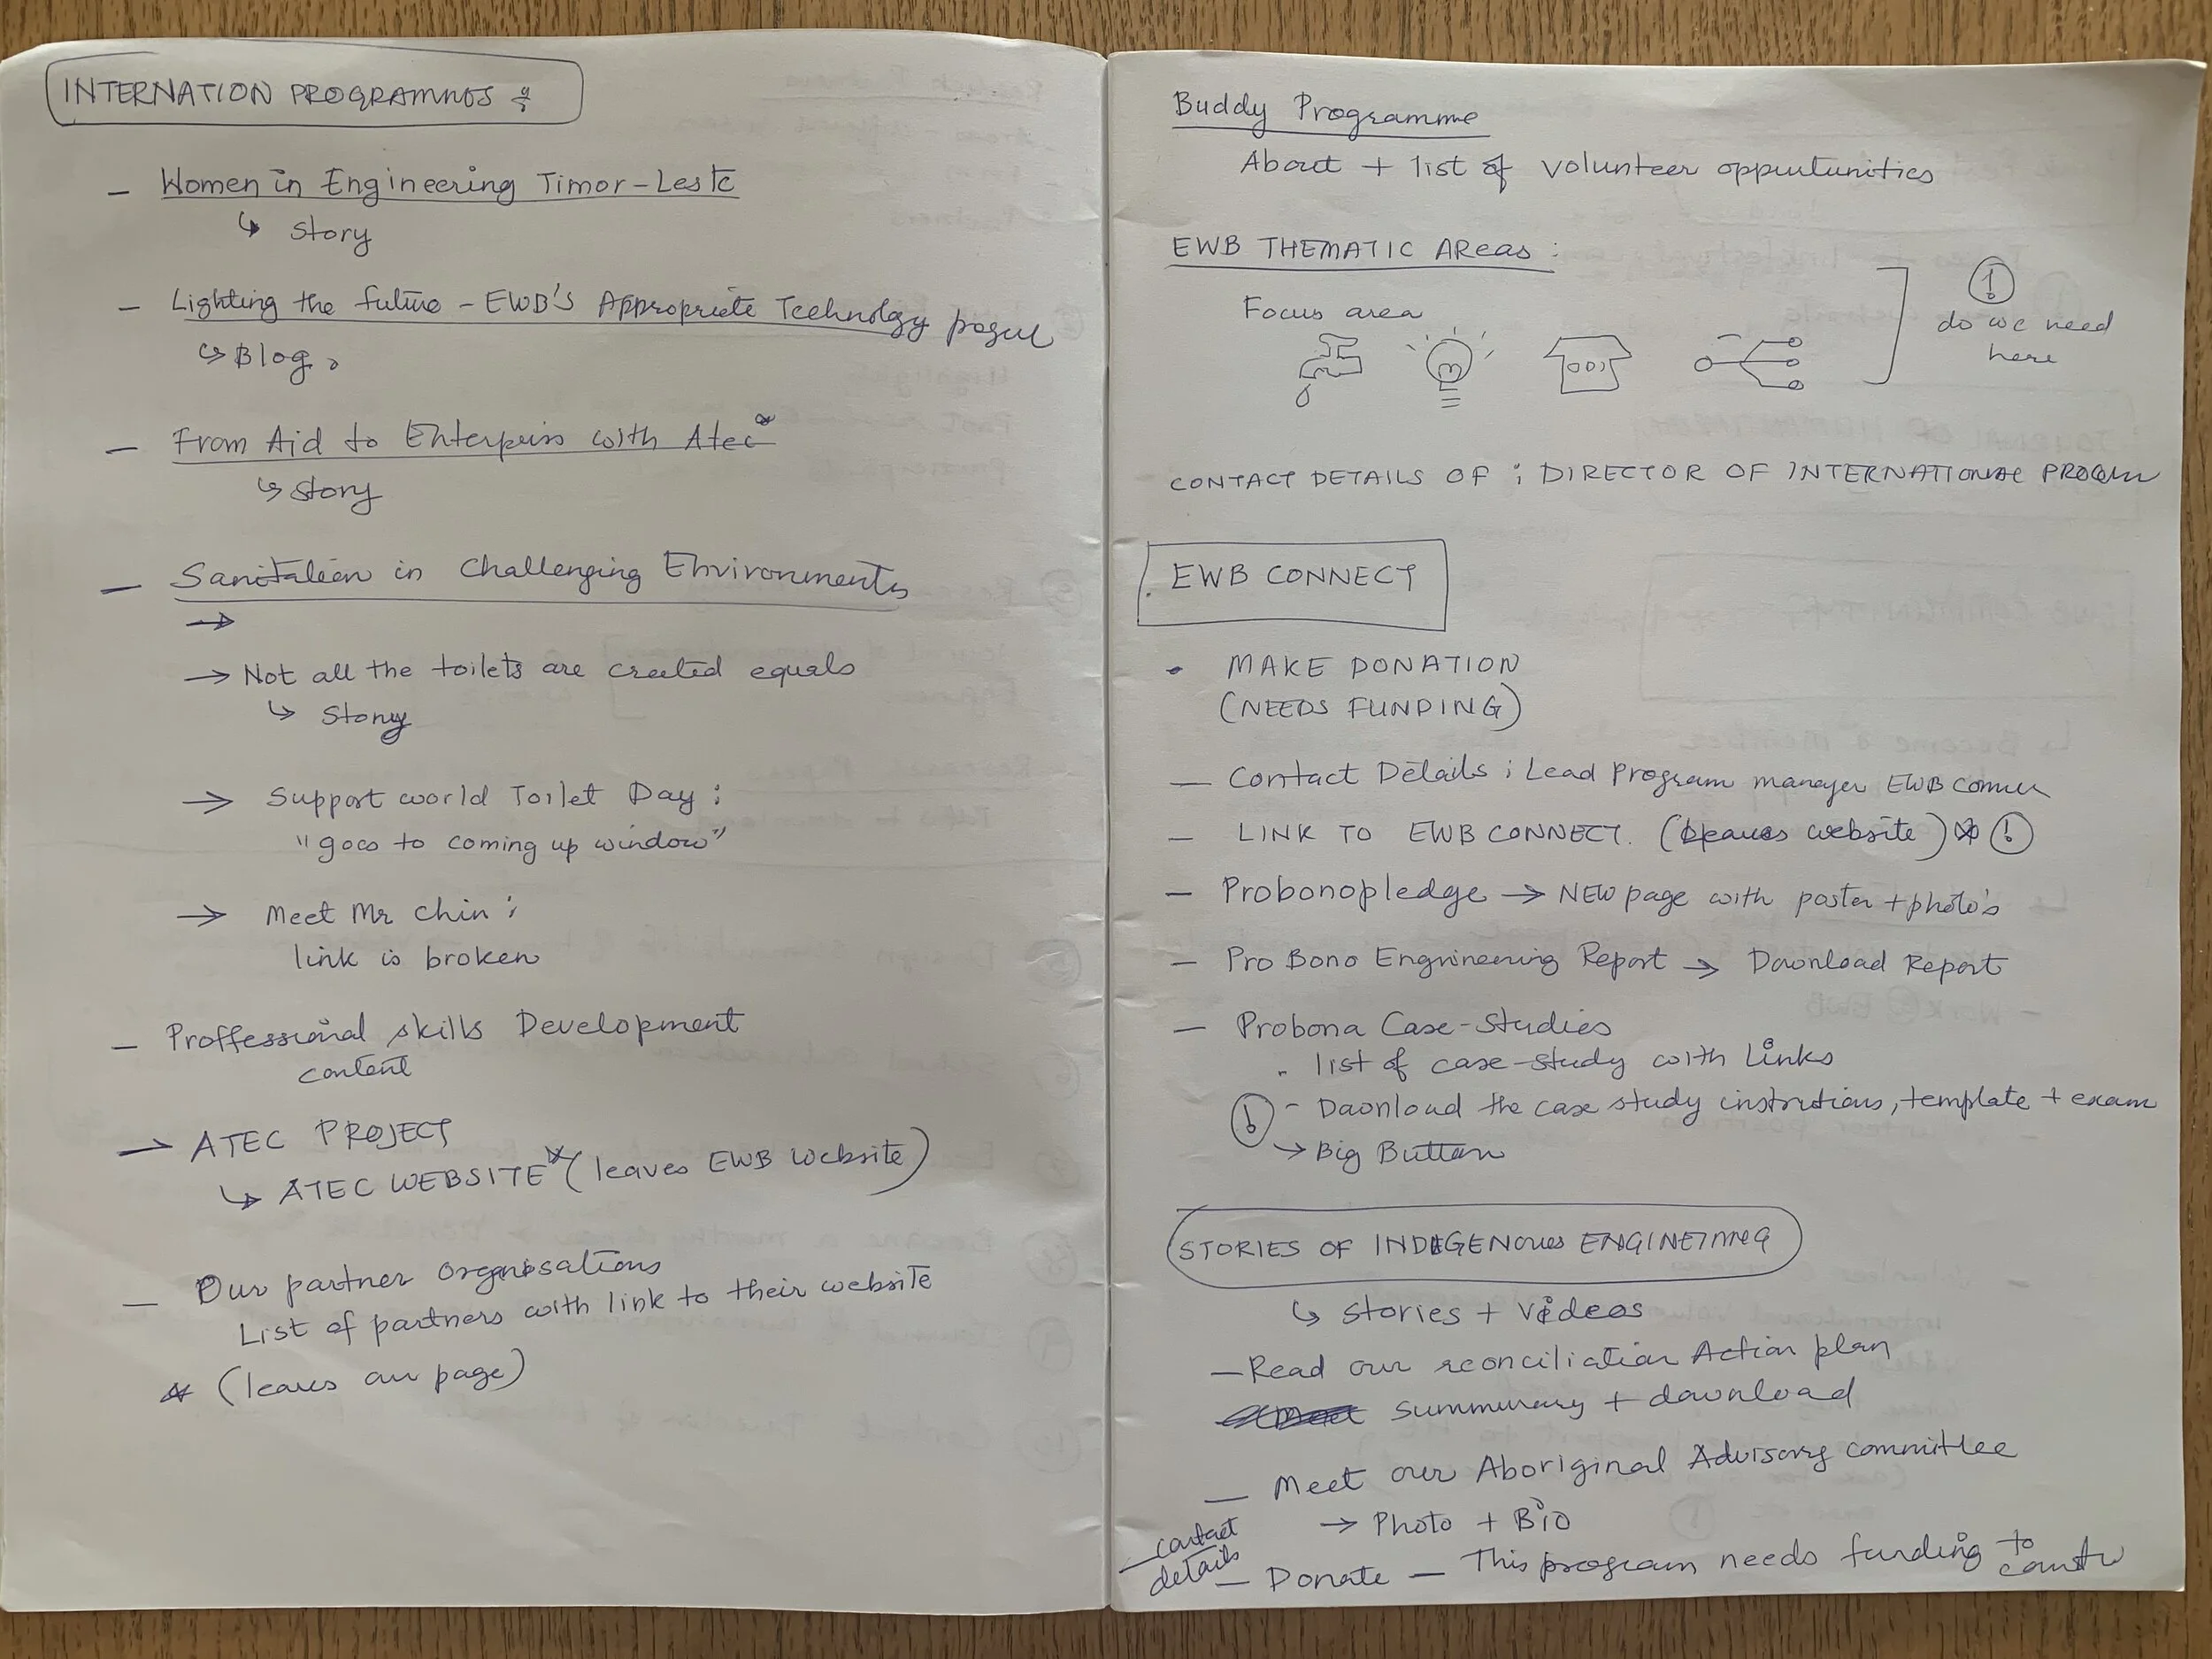 INTERNATION PROGRAMMES :
– Women in Engineering Timor-Leste
↳ story
– Lighting the future – EWB's Appropriate Technology
↳ Blog
– From Aid to Enterpriss with Atec
↳ story
– Sanitation in Challenging Environments
→
→ Not all the toilets are created equals
↳ Story
→ Support world Toilet Day :
"goes to coming up window"
→ Meet Mr Chin :
link is broken
– Proffessional skills Development
content
→ ATEC PROJECT
↳ ATEC WEBSITE * (leaves EWB website)
– Our partner organisations
List of partners with link to their website
* (leaves our page)
Buddy Programme
About + list of volunteer oppurtunities
EWB THEMATIC AReas :
Focus area
! do we need
here
CONTACT DETAILS OF : DIRECTOR OF INTERNATIONAL
EWB CONNECT
• MAKE DONATION
(NEEDS FUNDING)
– Contact Details : Lead Program manager EWB
– LINK TO EWB CONNECT. (leaves website) * !
– Probonopledge → NEW page with poster + photo's
– Pro Bono Engineering Report → Download Report
– Probona Case-Studies
- list of case-study with links
! - Download the case study instrutions, template + exam
→ Big Button
STORIES OF INDIGENOUS ENGINEERING
↳ stories + videos
– Read our reconciliation Action plan
summurary + download
– Meet our Aboriginal Advisory committee
→ Photo + Bio
– contact
details
– Donate – This program needs funding to